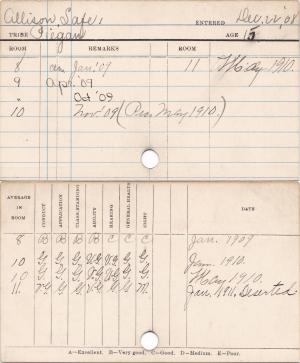 Allison, Tafe, ENTERED Dec, 22, 08
TRIBE Piegan AGE 15
ROOM REMARKS ROOM
8 Jan. '09 11 May 1910.
9 Apr. '09
" Oct '09
10 Nov '09 (Pro. May 1910.)
AVERAGE IN ROOM CONDUCT APPLICATION CLASS-STANDING ABILITY READING GENERAL HEALTH DATE
8 B B B B C C C Jan. 1909
10 G. G. G. V.G V.G G. G. Jan. 1910.
10 G. G. G. V.G G. G. May 1910.
11. V.G G. G. V.G G. G. M. Jan. 1911, Deserted
A—Excellent. B—Very good. C—Good. D—Medium. E—Poor.